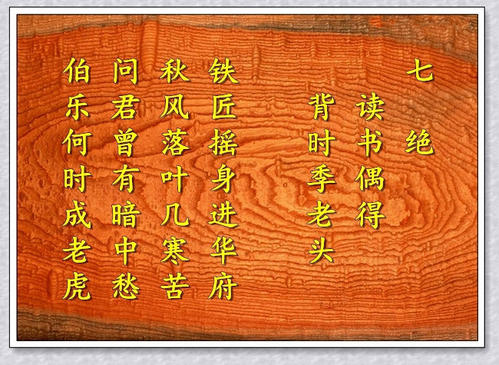 七绝
读书偶得
背时季老头
铁匠摇身进华府
秋风落叶几寒苦
问君曾有暗中愁
伯乐何时成老虎